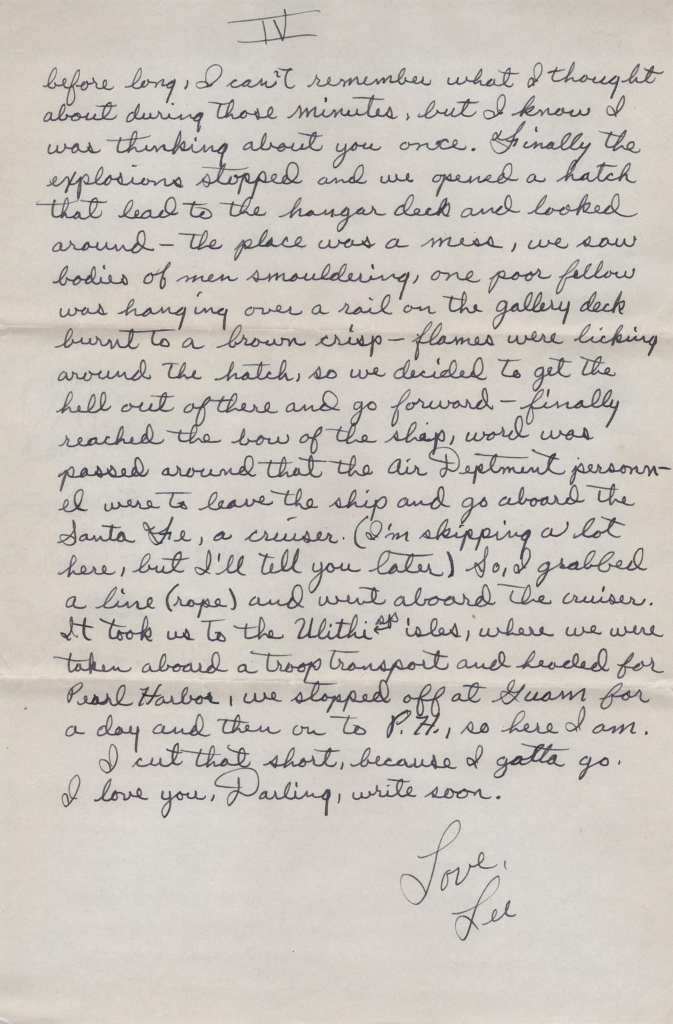 IV
before long, I can't remember what I thought
about during those minutes, but I know I
was thinking about you once. Finally the
explosions stopped and we opened a hatch
that lead to the hangar deck and looked
around - the place was a mess, we saw
bodies of men smouldering, one poor fellow
was hanging over a rail on the gallery deck
burnt to a brown crisp - flames were licking
around the hatch, so we decided to get the
hell out of there and go forward - finally
reached the bow of the ship, word was
passed around that the Air Deptment personn-
el were to leave the ship and go aboard the
Santa Fe, a cruiser. (I'm skipping a lot
here, but I'll tell you later) So, I grabbed
a line (rope) and went aboard the cruiser.
It took us to the Ulithi sp isles, where we were
taken aboard a troop transport and headed for
Pearl Harbor, we stopped off at Guam for
a day and then on to P.H., so here I am.
I cut that short, because I gatta go.
I love you, Darling, write soon.
Love,
Lee